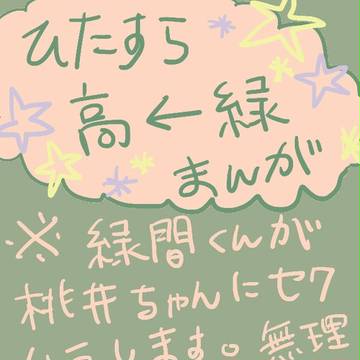 ひたすら
高←緑
まんが
※緑間くんが
桃井ちゃんにセク
ハラします。無理